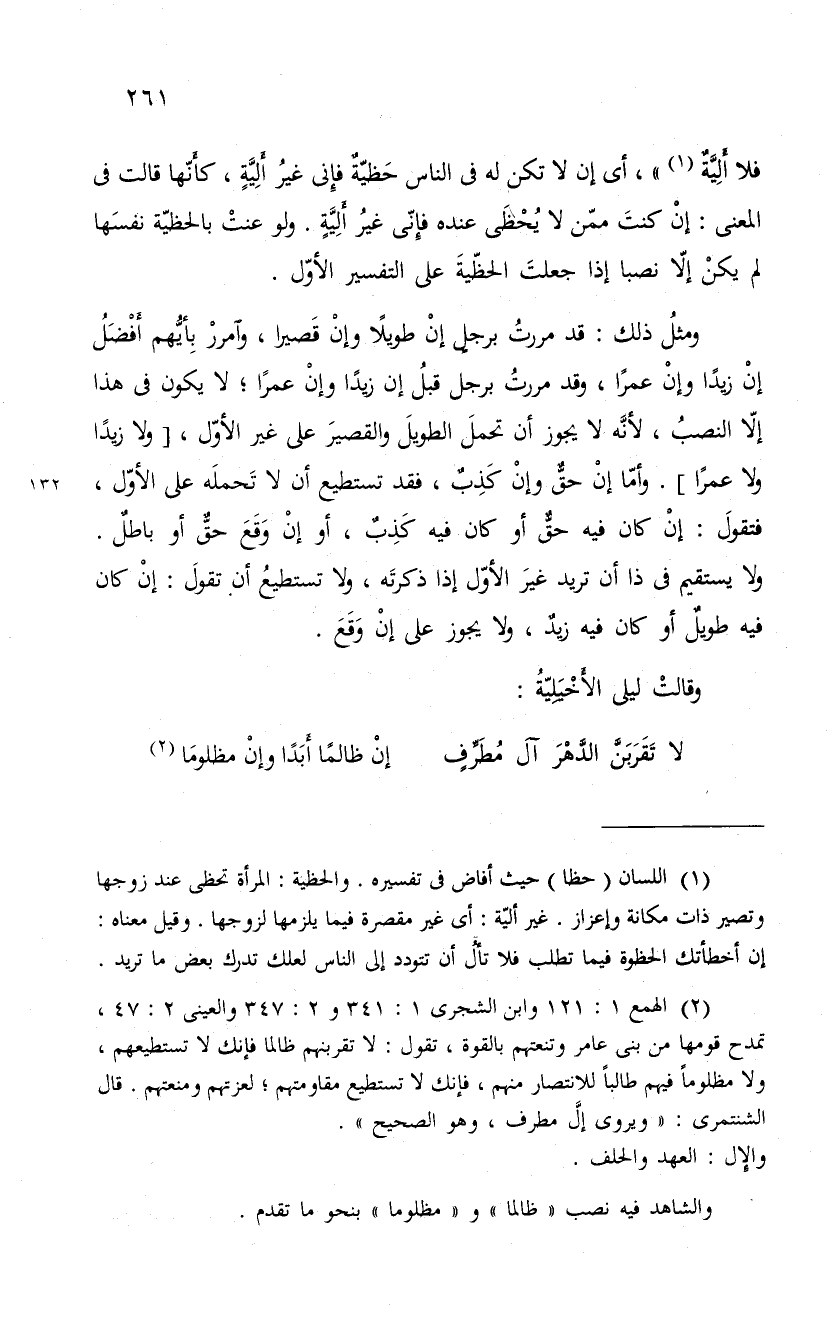 ٢٦١
فلا أَلِيَّةٌ (١) » ، أى إن لا تكن له فى الناس حَظيّةٌ فإنى غيرُ أَلِيَّةٍ ، كأَنّها قالت فى
المعنى : إنْ كنتَ ممّن لا يُحْظَى عنده فإِنّى غيرُ أَلِيَّةٍ . ولو عنتْ بالحظيّة نفسَها
لم يكنْ إلّا نصبا إذا جعلتَ الحظّيةَ على التفسير الأوّل .
ومثلُ ذلك : قد مررتُ برجلٍ إنْ طويلًا وإنْ قَصيرا ، وٱمررْ بِأيُّهم أَفْضَلُ
إنْ زيدًا وإنْ عمرًا ، وقد مررتُ برجل قبلُ إن زيدًا وإنْ عمرًا ؛ لا يكون فى هذا
إلّا النصبُ ، لأنَّه لا يجوز أن تحملَ الطويلَ والقصيرَ على غير الأوّل ، [ ولا زيدًا
ولا عمرًا ] . وأمّا إنْ حقٌّ وإنْ كَذِبٌ ، فقد تستطيع أن لا تَحملَه على الأوّل ، ١٣٢
فتقولَ : إنْ كان فيه حقٌّ أو كان فيه كَذِبٌ ، أو إنْ وَقَعَ حقٌّ أو باطلٌ .
ولا يستقيم فى ذا أن تريد غيرَ الأوّل إذا ذكرتَه ، ولا تستطيعُ أن تقولَ : إنْ كان
فيه طويلٌ أو كان فيه زيدٌ ، ولا يجوز على إنْ وَقَعَ .
وقالتْ ليلى الأَخْيَلِيّةُ :
لا تَقَرَبَنَّ الدَّهْرَ آلَ مُطَرِّفٍ إنْ ظالمًا أَبَدًا وإنْ مظلومَا (٢)
(١) اللسان ( حظا ) حيث أفاض فى تفسيره . والحظية : المرأة تحظى عند زوجها
وتصير ذات مكانة وإعزاز . غير أليّة : أى غير مقصرة فيما يلزمها لزوجها . وقيل معناه :
إن أخطأتك الحظوة فيما تطلب فلا تألُ أن تتودد إلى الناس لعلك تدرك بعض ما تريد .
(٢) الهمع ١ : ١٢١ وابن الشجرى ١ : ٣٤١ و ٢ : ٣٤٧ والعينى ٢ : ٤٧ ،
تمدح قومها من بنى عامر وتنعتهم بالقوة ، تقول : لا تقربنهم ظالما فإنك لا تستطيعهم ،
ولا مظلوماً فيهم طالباً للانتصار منهم ، فإنك لا تستطيع مقاومتهم ؛ لعزتهم ومنعتهم . قال
الشنتمرى : « ويروى إلَّ مطرف ، وهو الصحيح » .
والإل : العهد والحلف .
والشاهد فيه نصب « ظالما » و « مظلوما » بنحو ما تقدم .